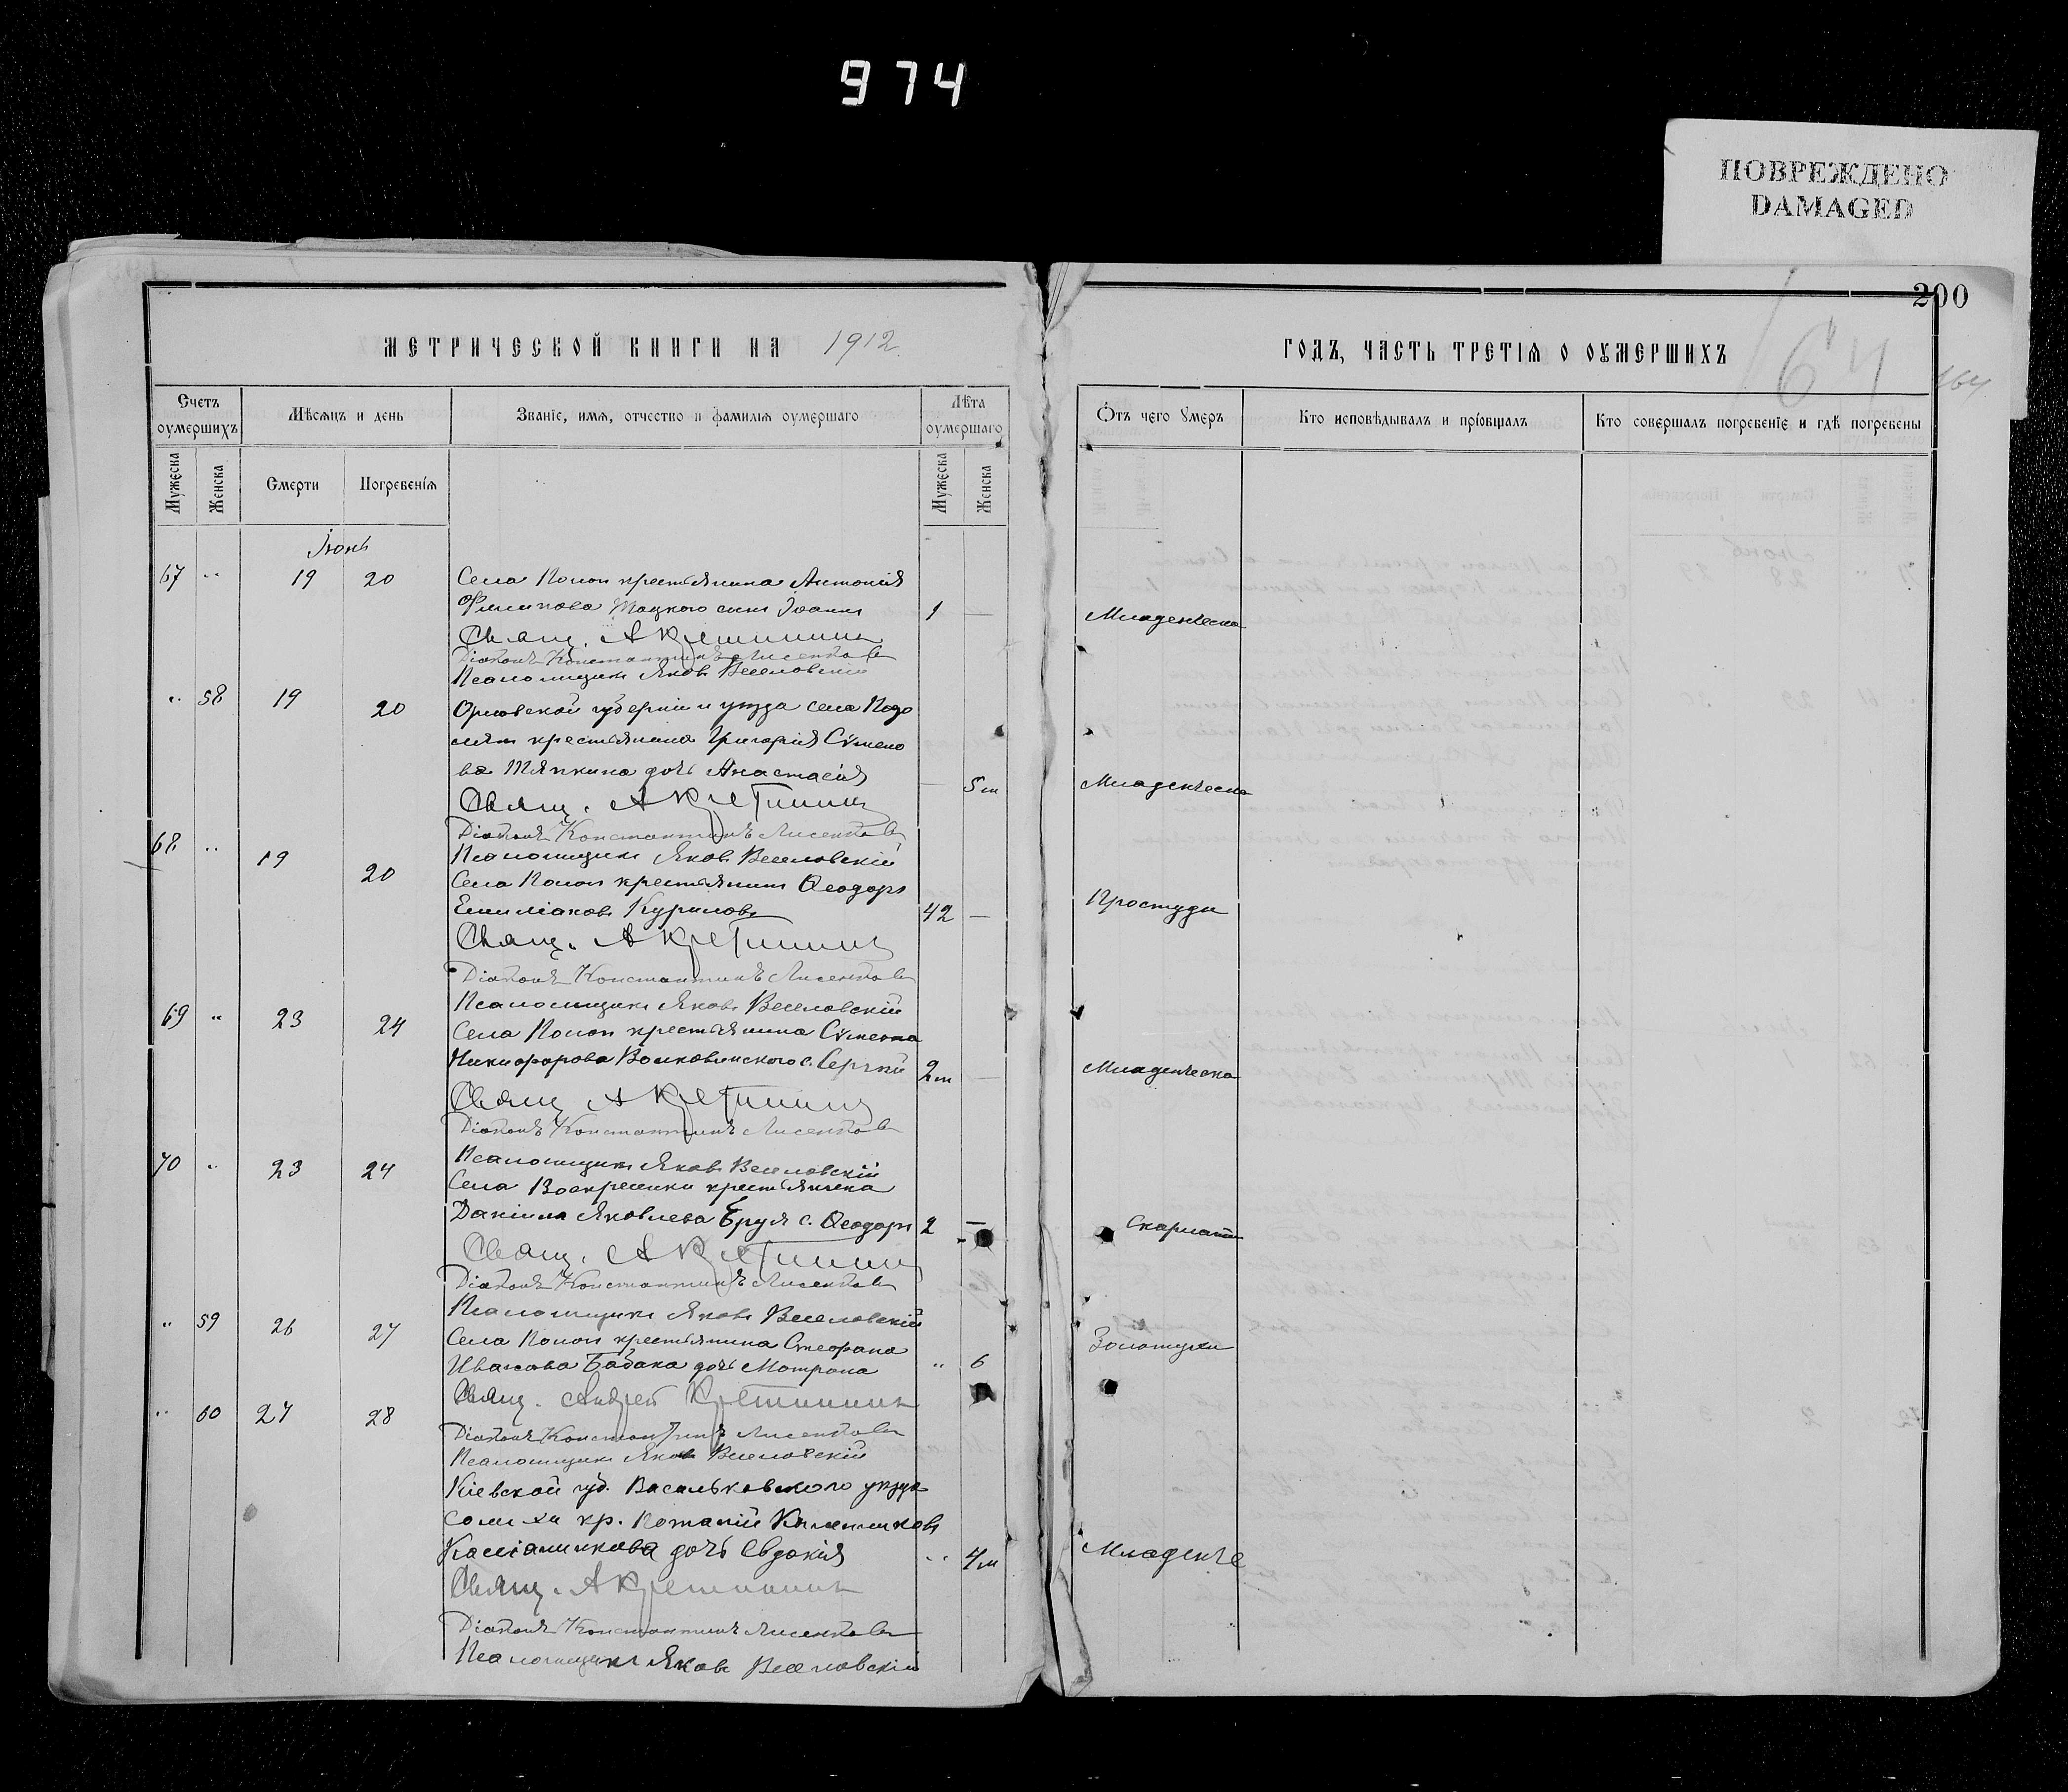 974
ПОВРЕЖДЕНО
DAMAGED
200
МЕТРИЧЕСКОЙ КНИГИ НА 1912
ГОДЪ, ЧАСТЬ ТРЕТІЯ О ОУМЕРШИХЪ
64
164
Счетъ оумершихъ
Мѣсяцъ и день
Званіе, имя, отчество и фамилія оумершаго
Лѣта оумершаго
Отъ чего Умеръ
Кто исповѣдывалъ и пріобщалъ
Кто совершалъ погребеніе и гдѣ погребены
Мужеска
Женска
Смерти
Погребенія
Мужеска
Женска
Іюнь
67 " 19 20 Села Попои крестьянина Антонія
Филипова сынъ Іоаннъ 1 — Младенческа
Свящ. А Кретининъ
Діаконъ Константинъ Лисенковъ
Псаломщикъ Яковъ Веселовскій
" 58 19 20 Орловской губерніи и уѣзда села Подо
крестьянина Григорія Сѵмено
ва Тяпкина дочь Анастасія — 5 м Младенческа
Свящ. А Кретининъ
Діаконъ Константинъ Лисенковъ
Псаломщикъ Яковъ Веселовскій
68 " 19 20 Села Попои крестьянинъ Ѳеодоръ
Емиліановъ Куриловъ 42 — Простуды
Свящ. А Кретининъ
Діаконъ Константинъ Лисенковъ
Псаломщикъ Яковъ Веселовскій
69 " 23 24 Села Попои крестьянина Сѵмеона
Никифорова Волковинского с. Сергѣй 2 м — Младенческа
Свящ А Кретининъ
Діаконъ Константинъ Лисенковъ
Псаломщикъ Яковъ Веселовскій
70 " 23 24 Села Воскресенки крестьянина
Даніила Яковлева Бруя с. Ѳеодоръ 2 — Скарлат
Свящ. А Кретининъ
Діаконъ Константинъ Лисенковъ
Псаломщикъ Яковъ Веселовскій
" 59 26 27 Села Попои крестьянина Стефана
Иванова Бабака дочь Матрона " 6 Золотухи
Свящ. Андрей Кретининъ
Діаконъ Константинъ Лисенковъ
Псаломщикъ Яковъ Веселовскій
" 60 27 28
Кіевской губ. Васильковского уѣзда
кр.
дочь Евдокія " 4 м Младенче
Свящ. А Кретининъ
Діаконъ Константинъ Лисенковъ
Псаломщикъ Яковъ Веселовскій